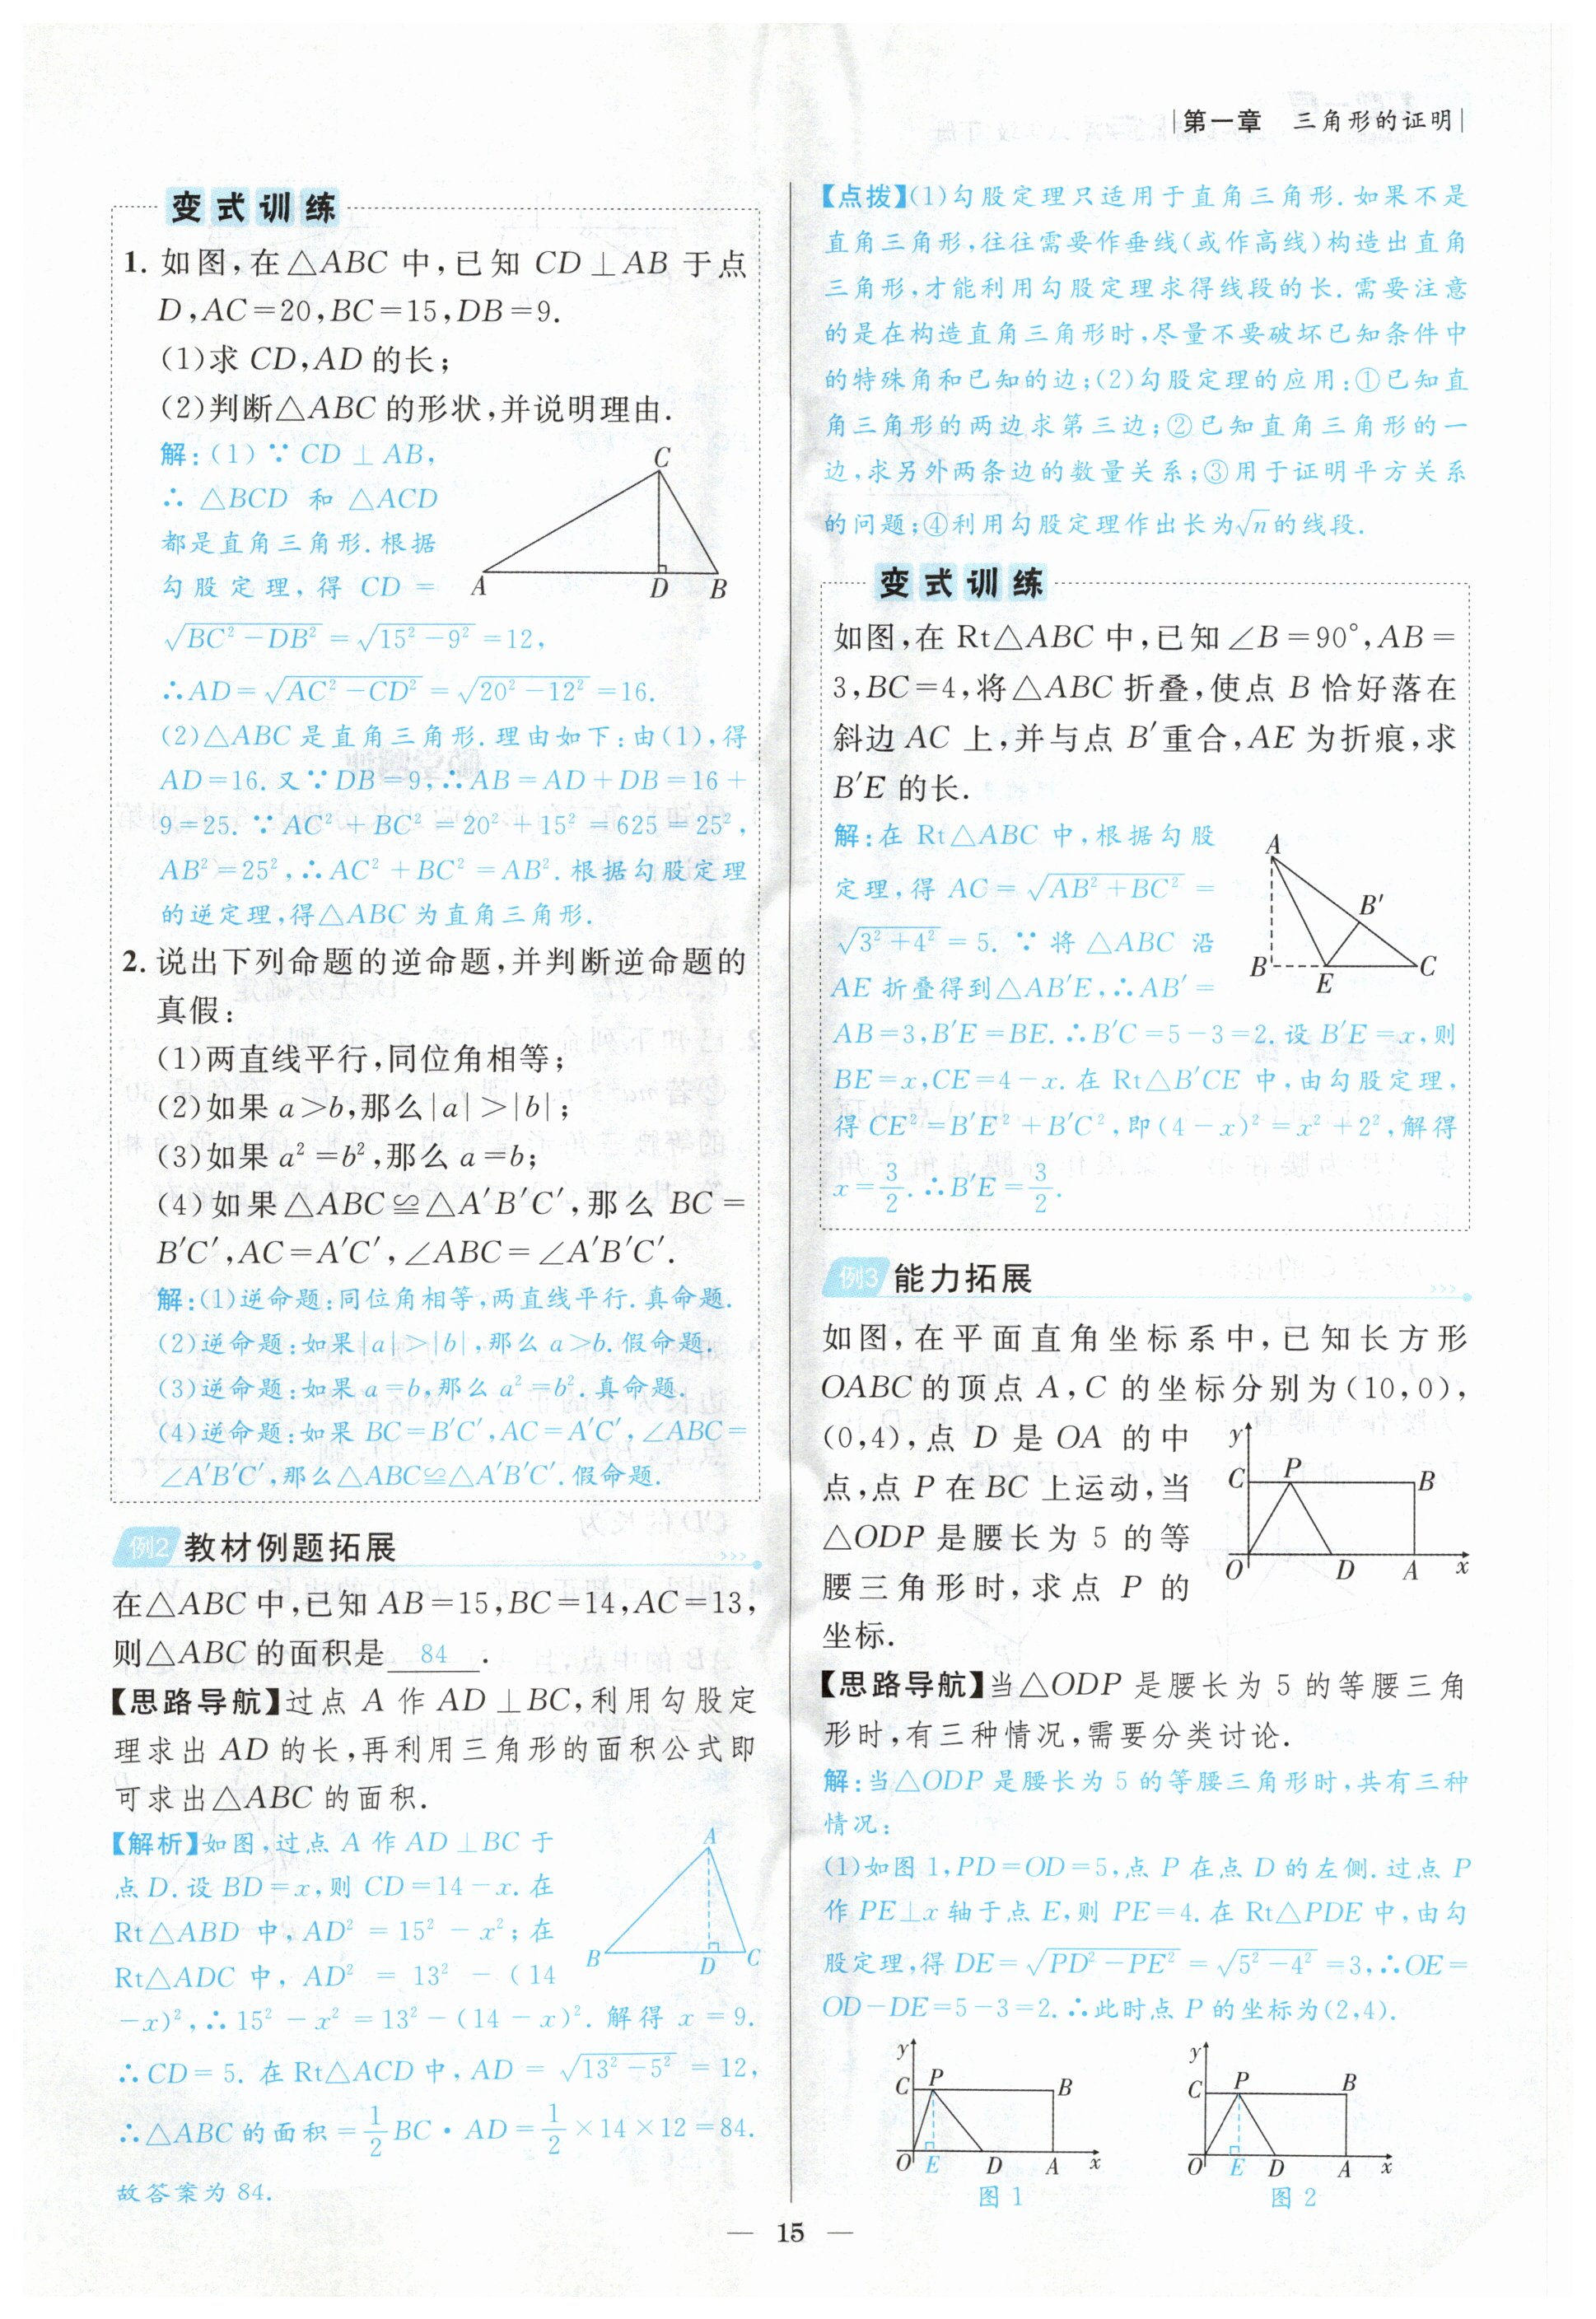 第一章 三角形的证明
变式训练
1. 如图,在△ABC 中,已知 CD⊥AB 于点
D,AC=20,BC=15,DB=9.
(1)求 CD,AD 的长;
(2)判断△ABC 的形状,并说明理由.
解:(1)∵CD⊥AB,
∴△BCD 和△ACD
都是直角三角形.根据
勾股定理,得 CD=
√(BC²-DB²)=√(15²-9²)=12,
∴AD=√(AC²-CD²)=√(20²-12²)=16.
(2)△ABC 是直角三角形.理由如下:由(1),得
AD=16.又∵DB=9,∴AB=AD+DB=16+
9=25.∵AC²+BC²=20²+15²=625=25²,
AB²=25²,∴AC²+BC²=AB².根据勾股定理
的逆定理,得△ABC 为直角三角形.
C
A
D
B
2. 说出下列命题的逆命题,并判断逆命题的
真假:
(1)两直线平行,同位角相等;
(2)如果 a>b,那么|a|>|b|;
(3)如果 a²=b²,那么 a=b;
(4)如果△ABC≌△A′B′C′,那么 BC=
B′C′,AC=A′C′,∠ABC=∠A′B′C′.
解:(1)逆命题:同位角相等,两直线平行.真命题.
(2)逆命题:如果|a|>|b|,那么 a>b.假命题.
(3)逆命题:如果 a=b,那么 a²=b².真命题.
(4)逆命题:如果 BC=B′C′,AC=A′C′,∠ABC=
∠A′B′C′,那么△ABC≌△A′B′C′.假命题.
例2 教材例题拓展
在△ABC 中,已知 AB=15,BC=14,AC=13,
则△ABC 的面积是 84 .
【思路导航】过点 A 作 AD⊥BC,利用勾股定
理求出 AD 的长,再利用三角形的面积公式即
可求出△ABC 的面积.
【解析】如图,过点 A 作 AD⊥BC 于
点 D.设 BD=x,则 CD=14-x.在
Rt△ABD 中,AD²=15²-x²;在
Rt△ADC 中,AD²=13²-(14
-x)²,∴15²-x²=13²-(14-x)².解得 x=9.
∴CD=5.在 Rt△ACD 中,AD=√(13²-5²)=12,
∴△ABC 的面积=1/2 BC·AD=1/2×14×12=84.
故答案为 84.
A
B
D
C
【点拨】(1)勾股定理只适用于直角三角形.如果不是
直角三角形,往往需要作垂线(或作高线)构造出直角
三角形,才能利用勾股定理求得线段的长.需要注意
的是在构造直角三角形时,尽量不要破坏已知条件中
的特殊角和已知的边;(2)勾股定理的应用:①已知直
角三角形的两边求第三边;②已知直角三角形的一
边,求另外两条边的数量关系;③用于证明平方关系
的问题;④利用勾股定理作出长为√n的线段.
变式训练
如图,在 Rt△ABC 中,已知∠B=90°,AB=
3,BC=4,将△ABC 折叠,使点 B 恰好落在
斜边 AC 上,并与点 B′重合,AE 为折痕,求
B′E 的长.
解:在 Rt△ABC 中,根据勾股
定理,得 AC=√(AB²+BC²)=
√(3²+4²)=5.∵将△ABC 沿
AE 折叠得到△AB′E,∴AB′=
AB=3,B′E=BE.∴B′C=5-3=2.设 B′E=x,则
BE=x,CE=4-x.在 Rt△B′CE 中,由勾股定理,
得 CE²=B′E²+B′C²,即(4-x)²=x²+2²,解得
x=3/2.∴B′E=3/2.
A
B′
B
E
C
例3 能力拓展
如图,在平面直角坐标系中,已知长方形
OABC 的顶点 A,C 的坐标分别为(10,0),
(0,4),点 D 是 OA 的中
点,点 P 在 BC 上运动,当
△ODP 是腰长为 5 的等
腰三角形时,求点 P 的
坐标.
y
C
P
B
O
D
A
x
【思路导航】当△ODP 是腰长为 5 的等腰三角
形时,有三种情况,需要分类讨论.
解:当△ODP 是腰长为 5 的等腰三角形时,共有三种
情况:
(1)如图 1,PD=OD=5,点 P 在点 D 的左侧.过点 P
作 PE⊥x 轴于点 E,则 PE=4.在 Rt△PDE 中,由勾
股定理,得 DE=√(PD²-PE²)=√(5²-4²)=3,∴OE=
OD-DE=5-3=2.∴此时点 P 的坐标为(2,4).
y
C
P
B
O
E
D
A
x
图 1
y
C
P
B
O
E
D
A
x
图 2
— 15 —